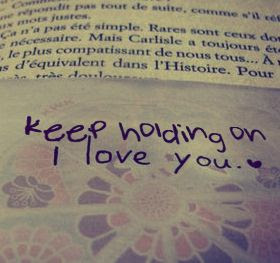 ne répondit pas tout de suite, comme s'il c
mots justes.
Ça n'a pas été simple. Rares sont ceux dot
nécessaire. Mais Carlisle a toujours été
, le plus compatissant de nous tous... À
d'équivalent dans l'Histoire. Pour
très douloureu
keep holding on
I love you.